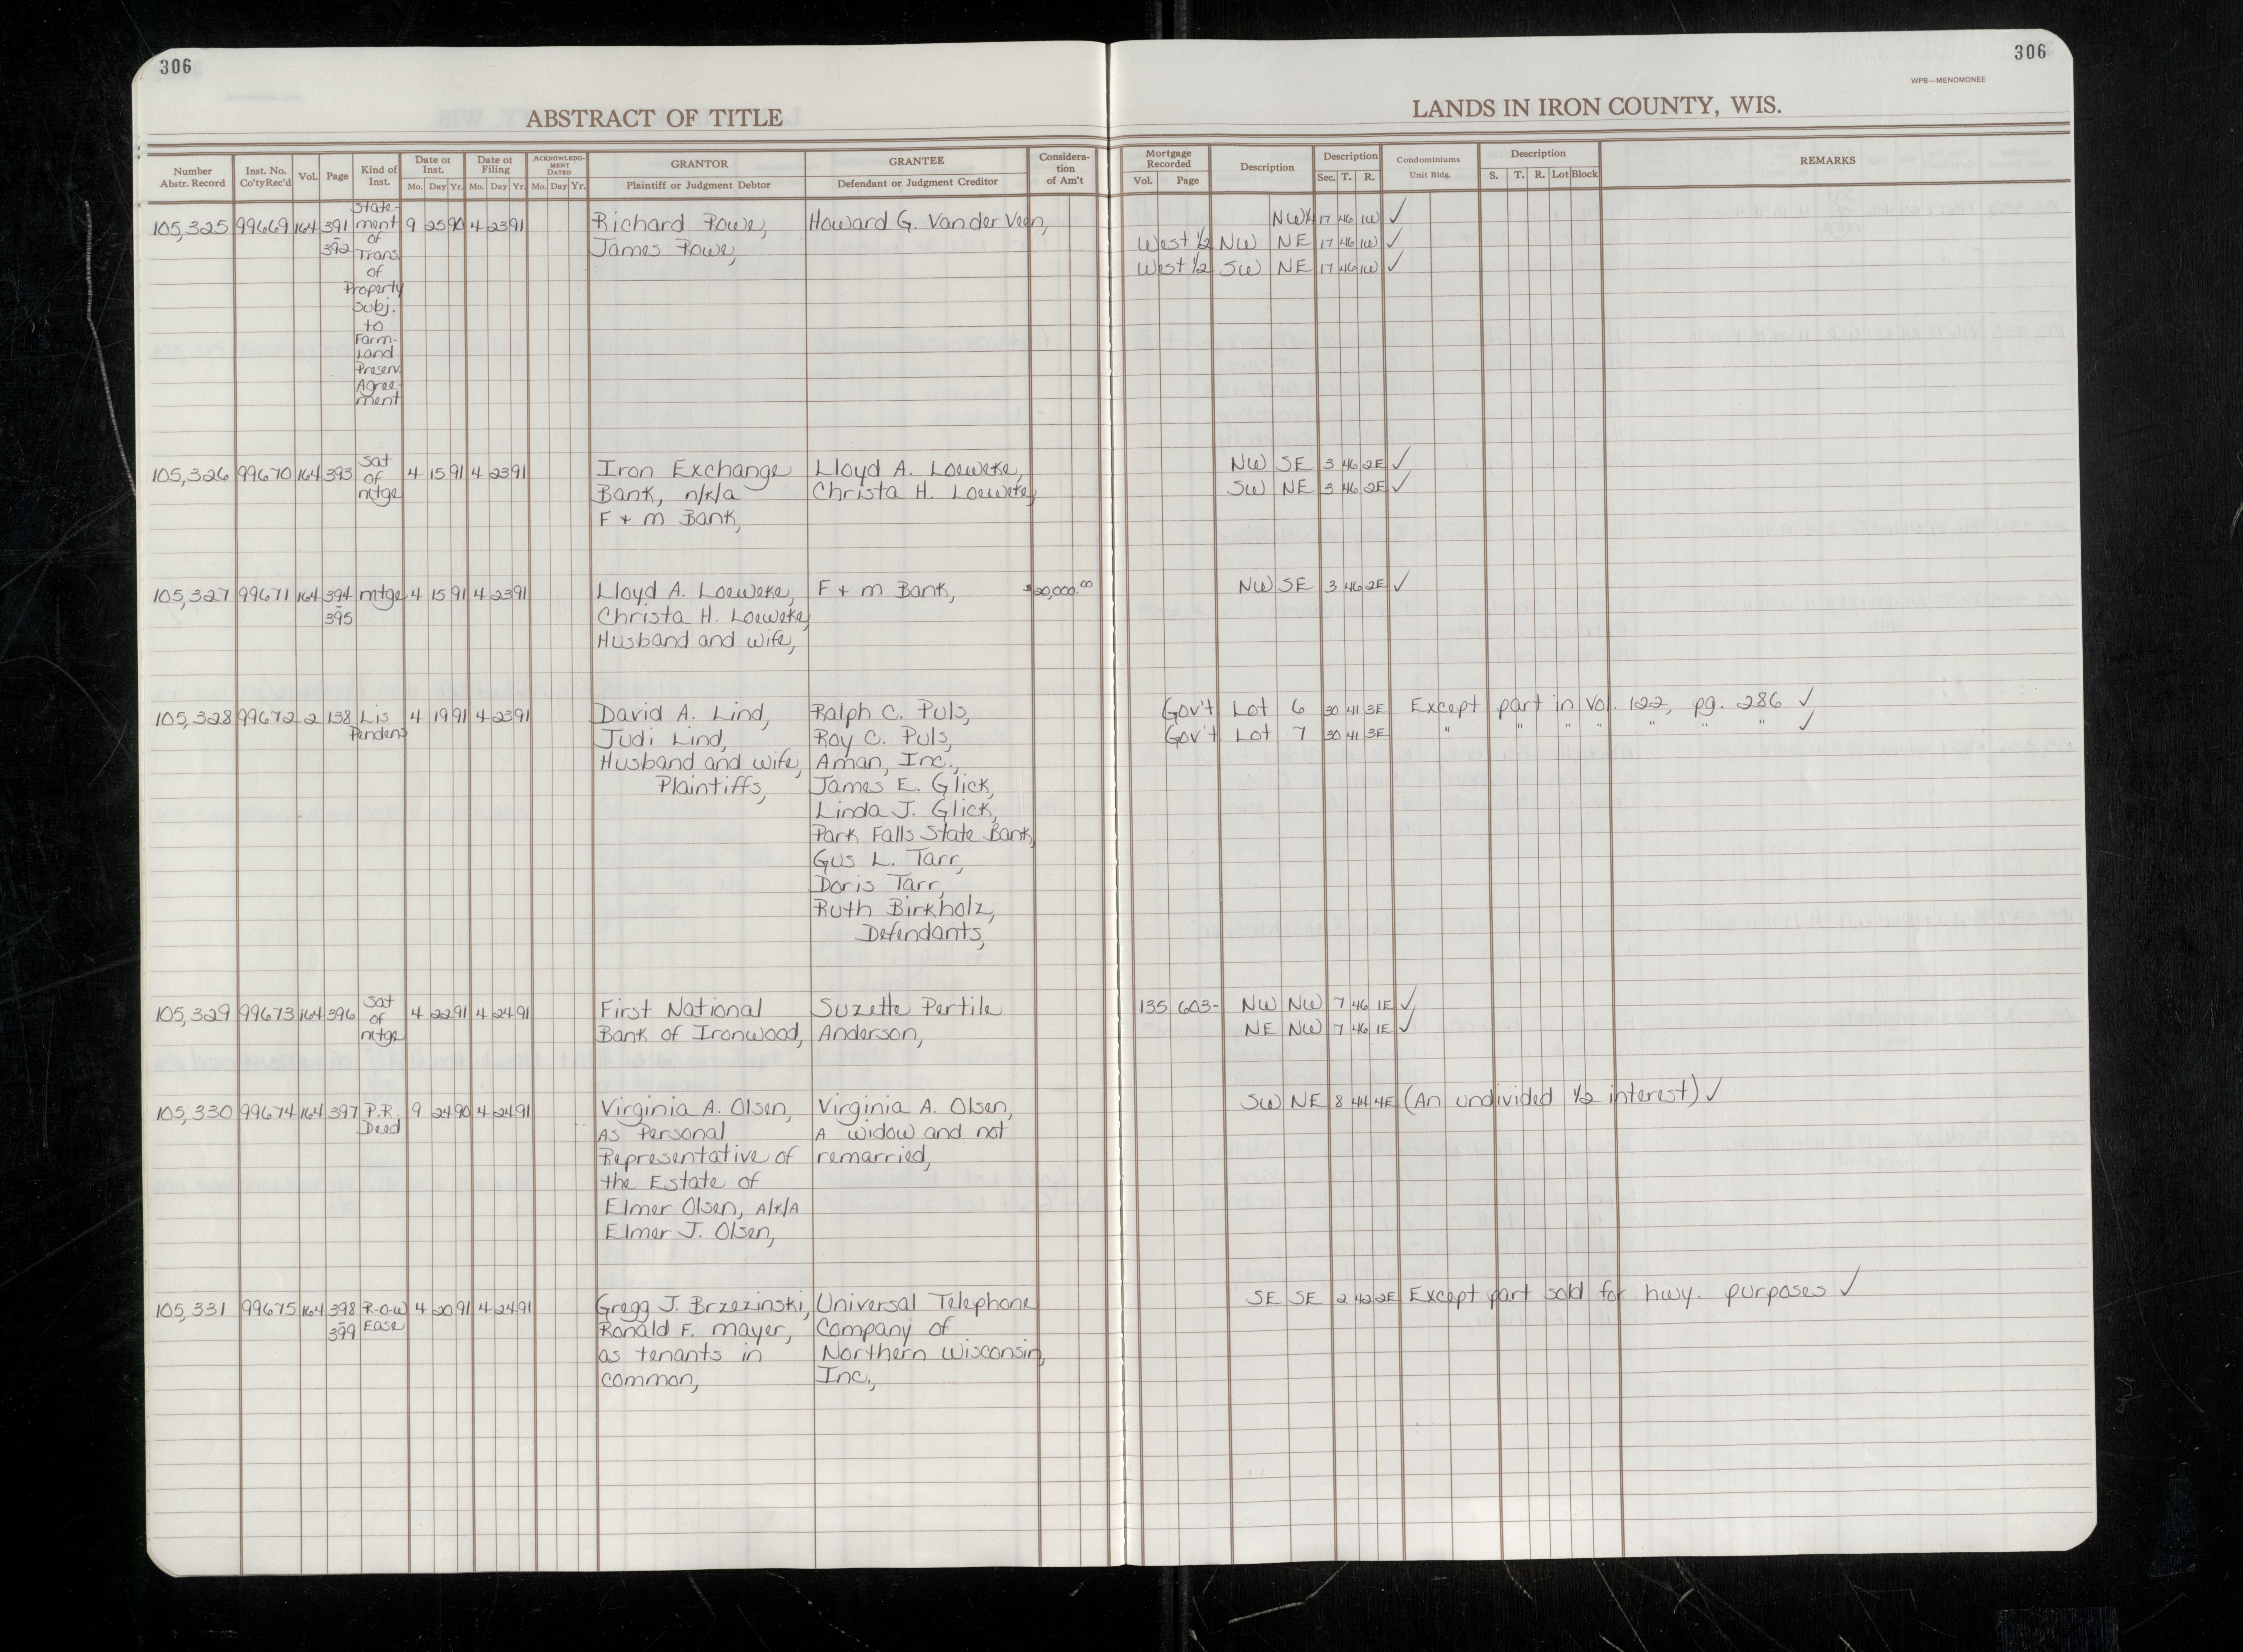 306
306
WPB—MENOMONEE
ABSTRACT OF TITLE
LANDS IN IRON COUNTY, WIS.
Number Abstr. Record | Inst. No. Co'ty Rec'd | Vol. | Page | Kind of Inst. | Date of Inst. Mo. Day Yr. | Date of Filing Mo. Day Yr. | ACKNOWLEDGMENT DATED Mo. Day Yr. | GRANTOR Plaintiff or Judgment Debtor | GRANTEE Defendant or Judgment Creditor | Consideration of Am't | Mortgage Recorded Vol. Page | Description | Description Sec. T. R. | Condominiums Unit Bldg. | Description S. T. R. Lot Block | REMARKS
105,325 99669 164 391 - 392 Statement of Trans. of Property Subj. to Farmland Preserv. Agreement 9 25 90 4 23 91 Richard Rowe, Howard G. Vander Veen, NW¼ 17 46 1W ✓
James Rowe, West ½ NW NE 17 46 1W ✓
West ½ SW NE 17 46 1W ✓
105,326 99670 164 393 Sat of mtge 4 15 91 4 23 91 Iron Exchange Lloyd A. Loeweke, NW SE 3 46 2E ✓
Bank, n/k/a Christa H. Loeweke, SW NE 3 46 2E ✓
F + M Bank,
105,327 99671 164 394 - 395 mtge 4 15 91 4 23 91 Lloyd A. Loeweke, F + M Bank, $20,000.00 NW SE 3 46 2E ✓
Christa H. Loeweke,
Husband and wife,
105,328 99672 2 138 Lis Pendens 4 19 91 4 23 91 David A. Lind, Ralph C. Puls, Gov't Lot 6 30 41 3E Except part in Vol. 122, pg. 286 ✓
Judi Lind, Roy C. Puls, Gov't Lot 7 30 41 3E " " " " " " " ✓
Husband and wife, Aman, Inc.,
Plaintiffs, James E. Glick,
Linda J. Glick,
Park Falls State Bank,
Gus L. Tarr,
Doris Tarr,
Ruth Birkholz,
Defendants,
105,329 99673 164 396 Sat of mtge 4 22 91 4 24 91 First National Suzette Pertile 135 603- NW NW 7 46 1E ✓
Bank of Ironwood, Anderson, NE NW 7 46 1E ✓
105,330 99674 164 397 P.R. Deed 9 24 90 4 24 91 Virginia A. Olsen, Virginia A. Olsen, SW NE 8 44 4E (An undivided ½ interest) ✓
As Personal A widow and not
Representative of remarried,
the Estate of
Elmer Olsen, A/K/A
Elmer J. Olsen,
105,331 99675 164 398 - 399 R-O-W Ease 4 20 91 4 24 91 Gregg J. Brzezinski, Universal Telephone SE SE 2 42 2E Except part sold for hwy. purposes ✓
Ronald F. Mayer, Company of
as tenants in Northern Wisconsin,
common, Inc.,